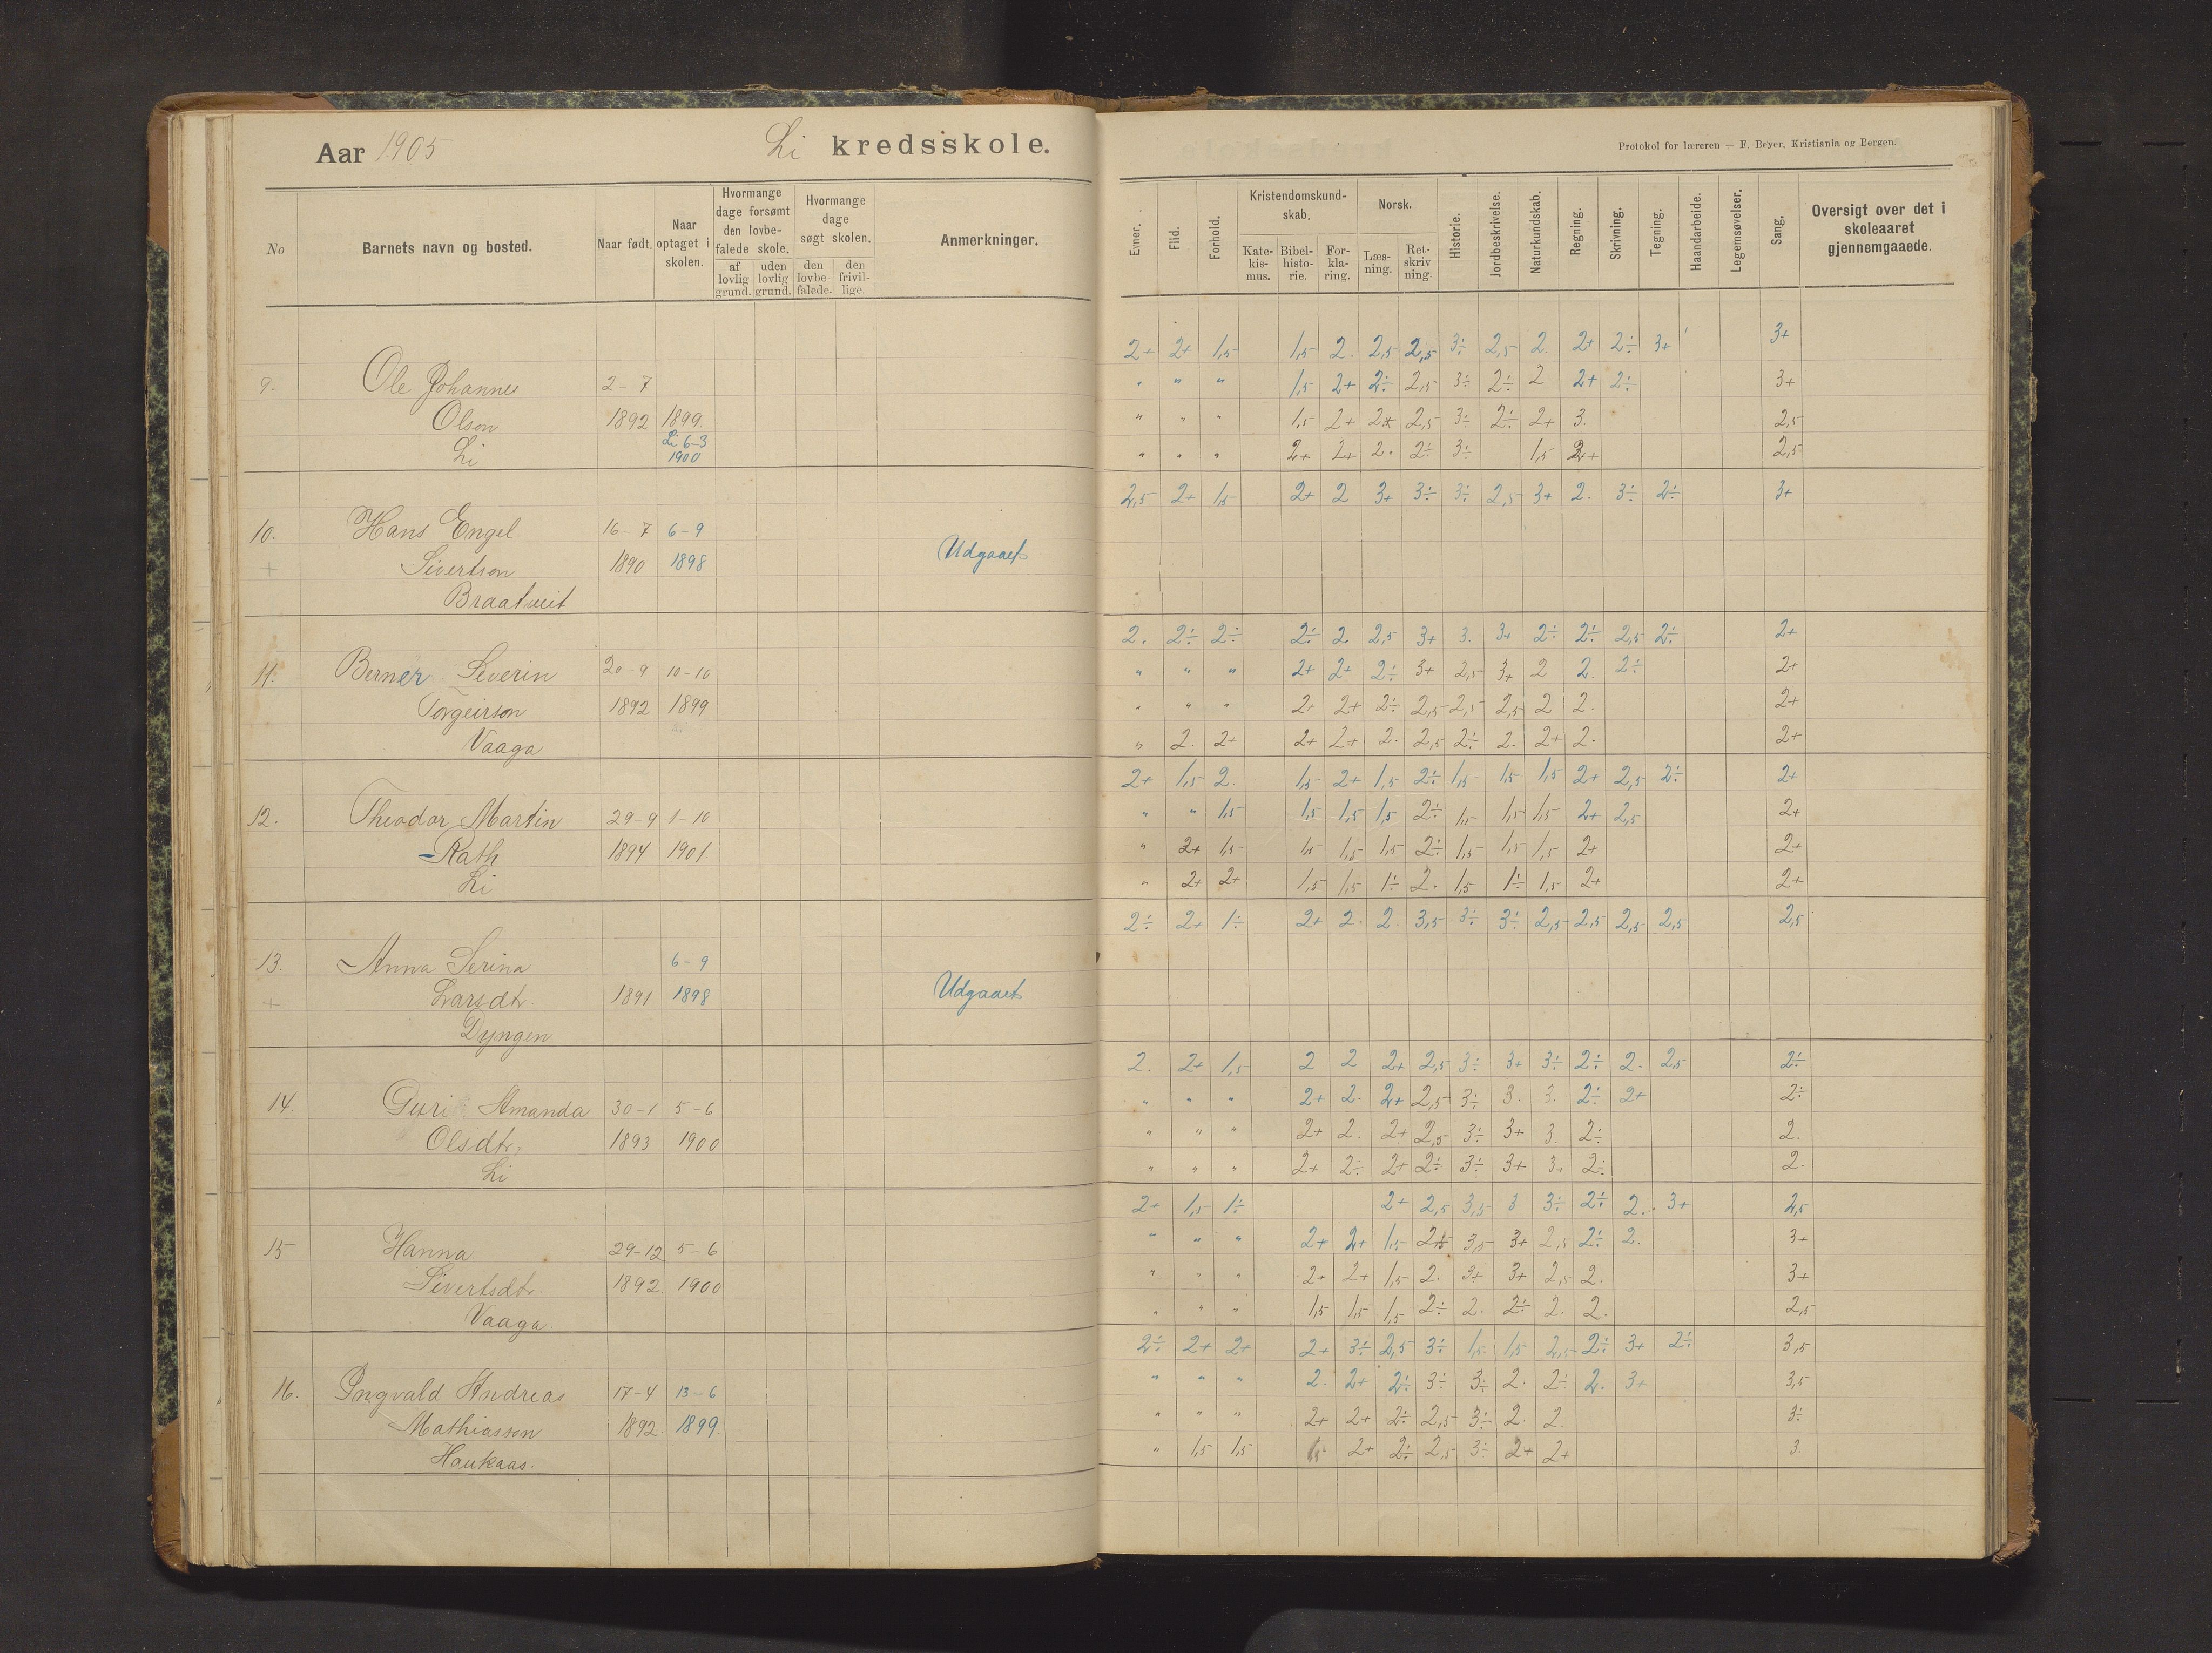 Aar 1905 Li kredsskole.
Protokol for læreren — F. Beyer, Kristiania og Bergen.
No Barnets navn og bosted. Naar født. Naar optaget i skolen. Hvormange dage forsømt den lovbefalede skole. af lovlig grund. uden lovlig grund. Hvormange dage søgt skolen. den lovbefalede. den frivillige. Anmerkninger.
Evner. Flid. Forhold. Kristendomskundskab. Katekismus. Bibelhistorie. Forklaring. Norsk. Læsning. Retskrivning. Historie. Jordbeskrivelse. Naturkundskab. Regning. Skrivning. Tegning. Haandarbeide. Legemsøvelser. Sang. Oversigt over det i skoleaaret gjennemgaaede.
2+ 2+ 1,5 1,5 2. 2,5 2,5 3÷ 2,5 2. 2+ 2÷ 3+ 3+
9. Ole Johannes 2-7 " " " 1,5 2+ 2÷ 2,5 3÷ 2÷ 2 2+ 2÷ 3+
Olson 1892 1899. " " " 1,5 2+ 2+ 2,5 3÷ 2÷ 2+ 3. 2,5
Li Li 6-3 1900 " " " 2+ 2+ 2. 2÷ 3÷ 1,5 2+ 2,5
2,5 2+ 1,5 2+ 2 3+ 3÷ 3÷ 2,5 3+ 2. 3÷ 2÷ 3+
10. Hans Engel 16-7 6-9
+ Sivertson 1890 1898 Udgaaet
Braatveit
2. 2÷ 2÷ 2÷ 2. 2,5 3+ 3. 3+ 2÷ 2÷ 2,5 2÷ 2+
11. Berner Severin 20-9 10-10 " " " 2+ 2+ 2÷ 3+ 2,5 3+ 2 2. 2÷ 2+
Torgeirson 1892 1899 " " " 2+ 2+ 2÷ 2,5 2,5 2,5 2 2. 2+
Vaaga " 2. 2+ 2+ 2+ 2. 2,5 2÷ 2. 2+ 2. 2+
2+ 1,5 2. 1,5 2+ 1,5 2÷ 1,5 1,5 1,5 2+ 2,5 2÷ 2+
12. Theodor Martin 29-9 1-10 " " 1,5 1,5 1,5 1,5 2÷ 1,5 1,5 1,5 2+ 2,5 2+
Rath 1894 1901. " 2+ 1,5 1,5 1,5 1,5 2÷ 1,5 1,5 1,5 2+ 2+
Li " 2+ 2+ 1,5 1,5 1÷ 2. 1,5 1÷ 1,5 2+ 2+
2÷ 2+ 1÷ 2+ 2. 2. 3,5 3÷ 3÷ 2,5 2,5 2,5 2,5 2,5
13. Anna Serina 6-9
+ Larsdtr. 1891 1898 Udgaaet
Dyngen
2. 2+ 1,5 2 2 2+ 2,5 3÷ 3+ 3÷ 2÷ 2. 2,5 2÷
14 Guri Amanda 30-1 5-6 " " " 2+ 2. 2+ 2,5 3÷ 3. 3. 2÷ 2+ 2÷
Olsdtr. 1893 1900 " " " 2+ 2. 2+ 2,5 3÷ 3+ 3. 2÷ 2.
Li " " " 2+ 2÷ 2+ 2÷ 3÷ 3+ 3+ 2÷ 2.
2+ 1,5 1÷ 2+ 2,5 3,5 3 3÷ 2÷ 2. 3+ 2,5
15 Hanna 29-12 5-6 " " " 2+ 2+ 1,5 3,5 3+ 2,5 2÷ 2. 3+
Sivertsdtr. 1892. 1900 " " " 2+ 2+ 1,5 2. 3+ 3+ 2,5 2. 3+
Vaaga. " " " 1,5 1,5 1,5 2÷ 2. 2÷ 2. 2. 2,5
2÷ 2+ 2+ 2+ 3÷ 2,5 3÷ 1,5 1,5 2,5 2÷ 3+ 2÷ 3,5
16. Ingvald Andreas 17-4 13-6 " " " 2. 2+ 2÷ 3÷ 3÷ 2. 2÷ 2. 3+ 3,5
Mathiasson 1892. 1899. " " " 2+ 2+ 2÷ 2,5 3÷ 2. 2. 3÷
Haukaas. " 1,5 1,5 2+ 2÷ 2,5 3÷ 2+ 2+ 3.